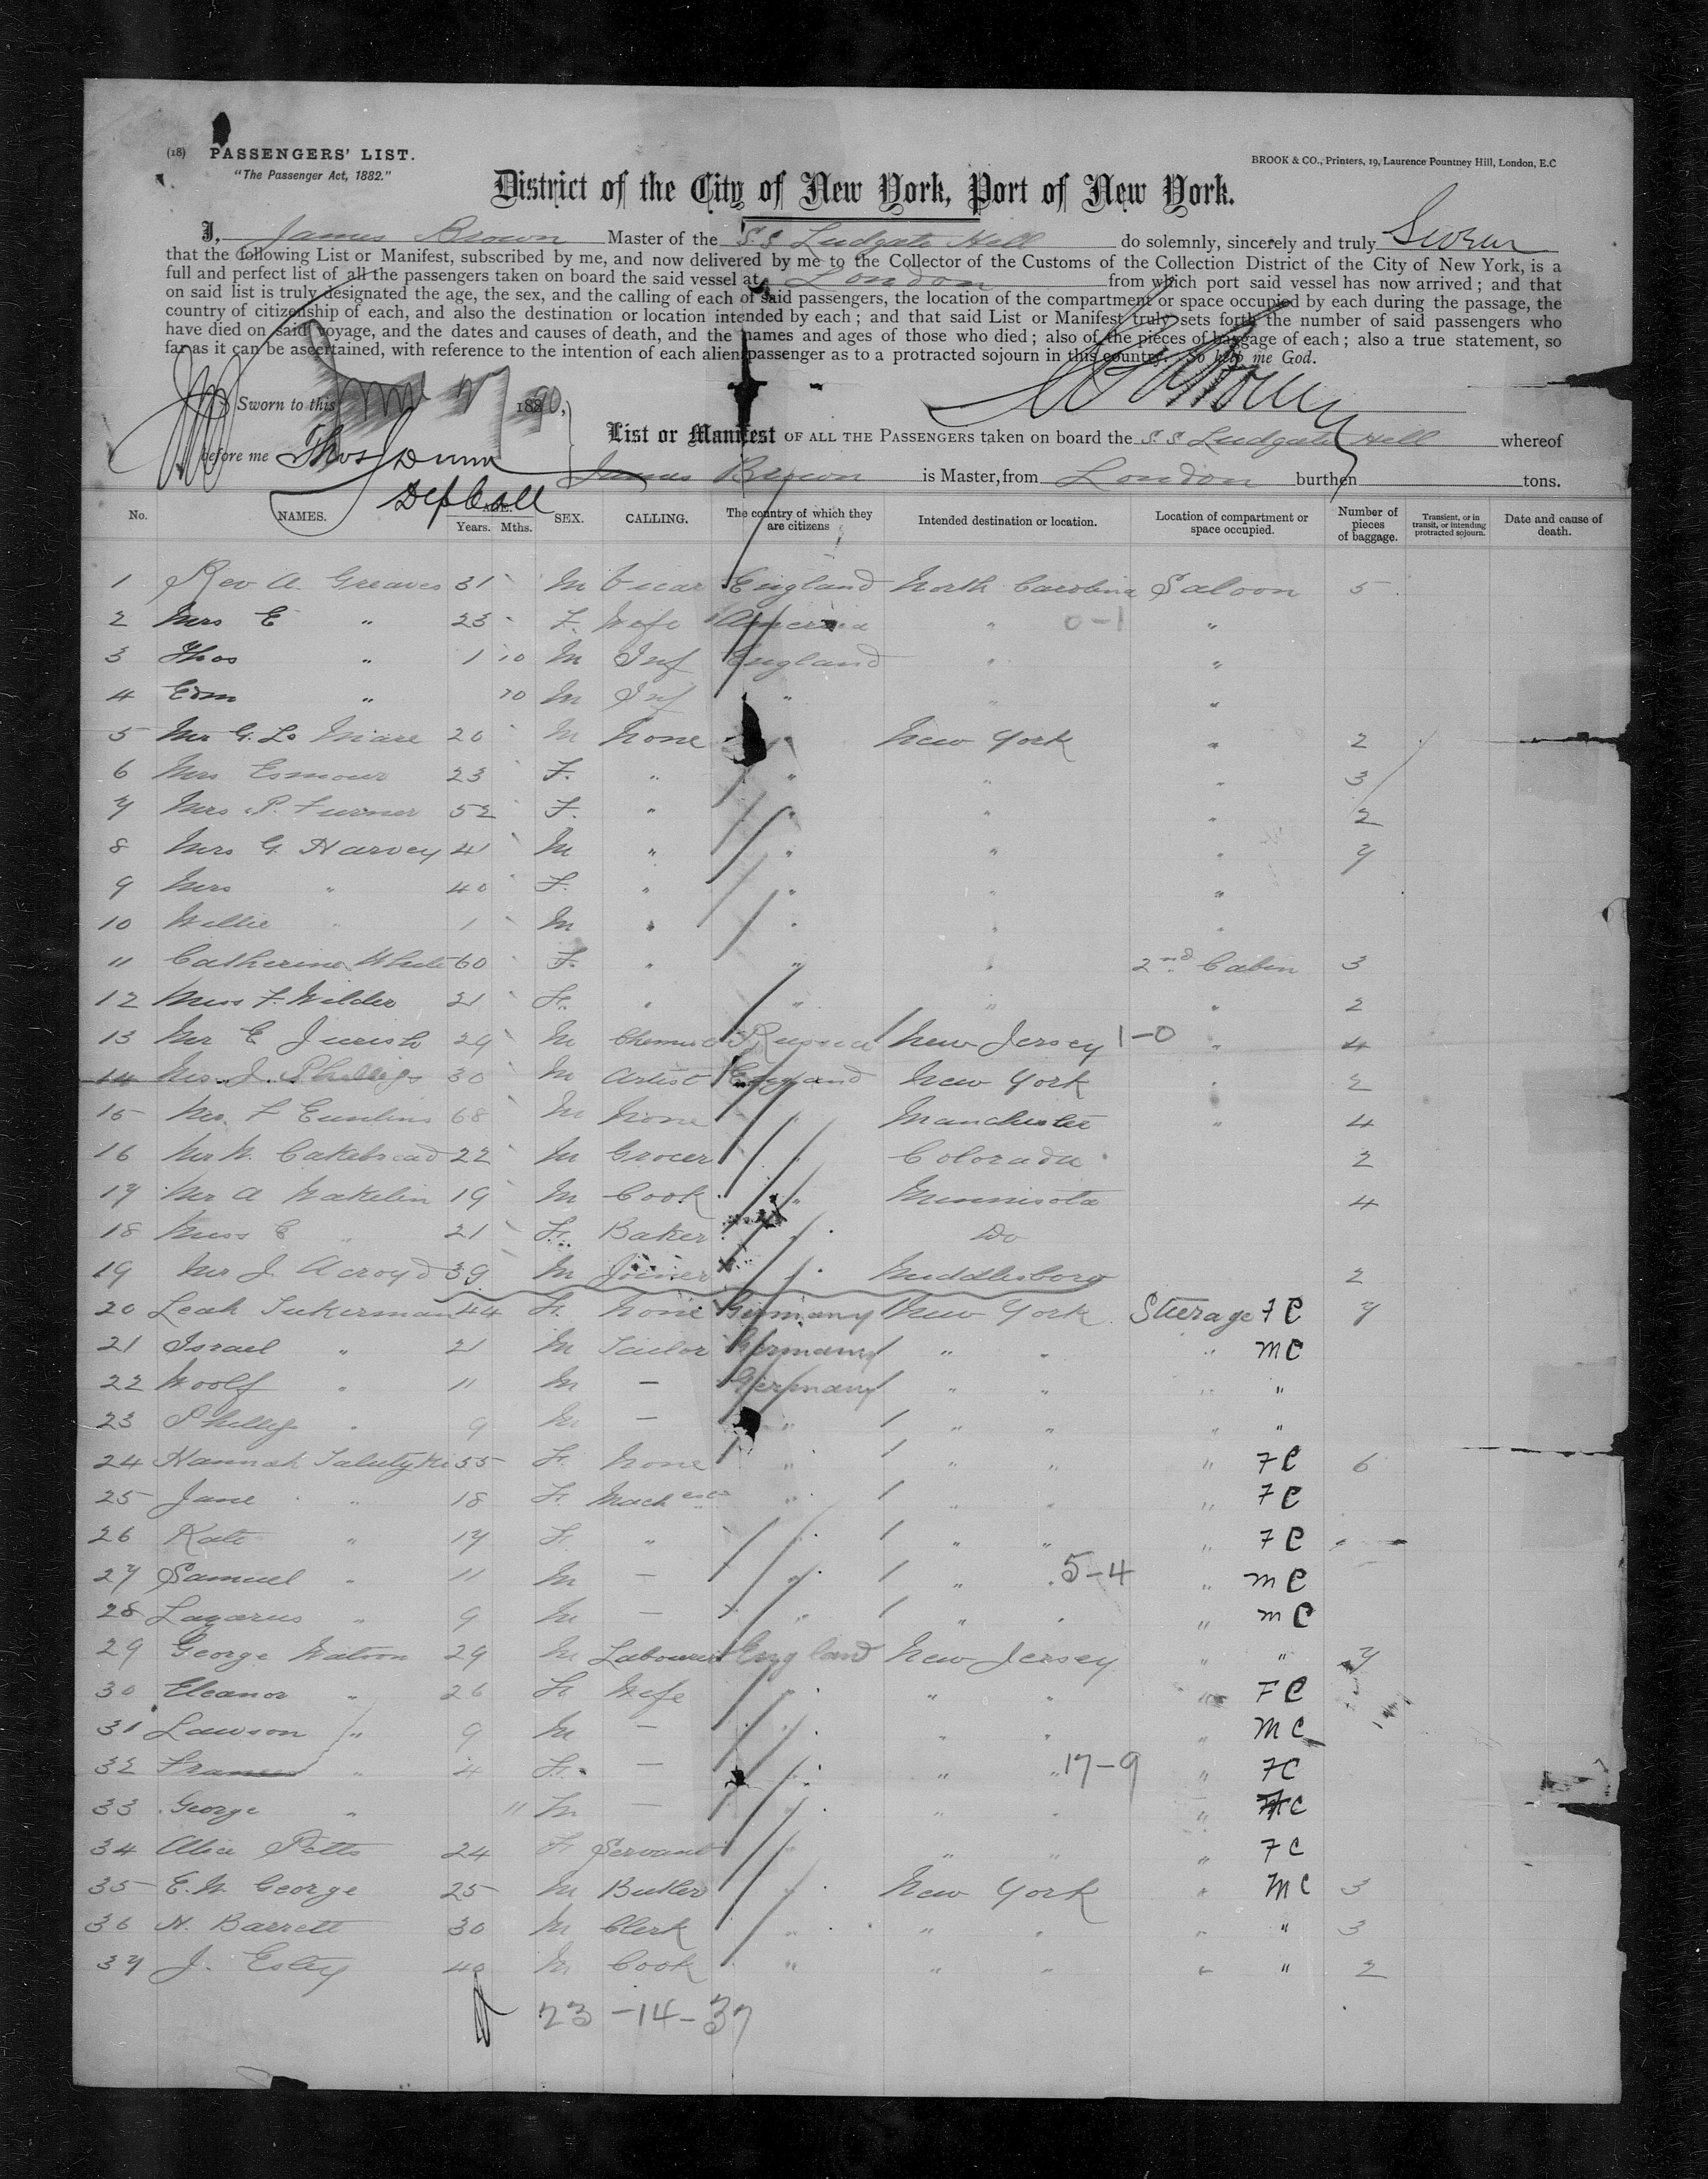 (18) PASSENGERS' LIST.
"The Passenger Act, 1882."
BROOK & CO., Printers, 19, Laurence Pountney Hill, London, E.C
District of the City of New York, Port of New York.
I, James Brown Master of the S.S Ludgate Hill do solemnly, sincerely and truly Swear
that the following List or Manifest, subscribed by me, and now delivered by me to the Collector of the Customs of the Collection District of the City of New York, is a
full and perfect list of all the passengers taken on board the said vessel at London from which port said vessel has now arrived; and that
on said list is truly designated the age, the sex, and the calling of each of said passengers, the location of the compartment or space occupied by each during the passage, the
country of citizenship of each, and also the destination or location intended by each; and that said List or Manifest truly sets forth the number of said passengers who
have died on said voyage, and the dates and causes of death, and the names and ages of those who died; also of the pieces of baggage of each; also a true statement, so
far as it can be ascertained, with reference to the intention of each alien passenger as to a protracted sojourn in this country. So help me God.
Sworn to this June 17 1890,
before me Thos J Dunn
Dep Coll
List or Manifest OF ALL THE PASSENGERS taken on board the S.S Ludgate Hill whereof
James Brown is Master, from London burthen tons.
No. NAMES. AGE. Years. Mths. SEX. CALLING. The country of which they are citizens Intended destination or location. Location of compartment or space occupied. Number of pieces of baggage. Transient, or in transit, or intending protracted sojourn. Date and cause of death.
1 Rev A. Greaves 31 M Vicar England North Carolina Saloon 5
2 Mrs E " 23 F. Wife America " 0-1 "
3 Thos " 1 10 M Inf England " "
4 Edm " 10 M Inf " " "
5 Mr G. Le Mare 20 M None " New York " 2
6 Mrs Esmour 23 F. " " " " 3
7 Mrs P. Turner 52 F. " " " " 2
8 Mrs G. Harvey 41 M " " " " 7
9 Mrs " 40 F. " " " "
10 Willie " 1 M " " " "
11 Catherine 60 F. " " " 2nd Cabin 3
12 Miss F. Wilder 21 F. " " " " 2
13 Mr E 29 M Chemist Russia New Jersey 1-0 " 4
14 J. Phillips 30 M Artist England New York " 2
15 Mr. F 68 M None " Manchester " 4
16 Mr W. Cakebread 22 M Grocer " Colorado 2
17 Mr A Wakelin 19 M Cook " Minnisota 4
18 Miss E " 21 F. Baker " Do
19 Mr J. Acroyd 39 M Joiner " Middlesboro 2
20 Leah Sukerman 44 F. None Germany New York Steerage FC 7
21 Israel " 21 M Tailor Germany " " " MC
22 Woolf " 11 M — Germany " " " "
23 Phillip " 9 M — " " " " "
24 Hannah 55 F. None " " " " FC 6
25 Jane " 18 F. " " " " FC
26 Kate " 17 F. " " " " " FC
27 Samuel " 11 M — " " " 5-4 " MC
28 Lazarus " 9 M — " " " " MC
29 George Watson 29 M Labourer England New Jersey " " 7
30 Eleanor " 26 F. Wife " " " " FC
31 Lawson " 9 M — " " " " MC
32 Frances " 4 F. — " " " 17-9 " FC
33 George " 11 M — " " " " C
34 Alice Pitts 24 F Servant " " " " FC
35 E. W. George 25 M Butler " New York " MC 3
36 H. Barrett 30 M Clerk " " " " " 3
37 J. Estey 40 M Cook " " " " " 2
23 - 14 - 37